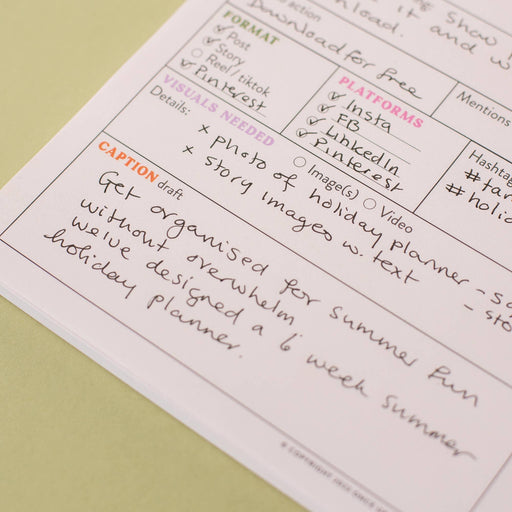 Show
it and w
nload.
action
Download for free
FORMAT
Post
Story
Reel/tiktok
Pinterest
PLATFORMS
Insta
FB
LinkedIn
Pinterest
Mentions
Hashtag
#tar
#holid
VISUALS NEEDED
Image(s) Video
Details:
x photo of holiday planner - sq
x story images w. text - sto
CAPTION draft
Get organised for summer fun
without overwhelm
we've designed a 6 week summer
holiday planner.
© COPYRIGHT